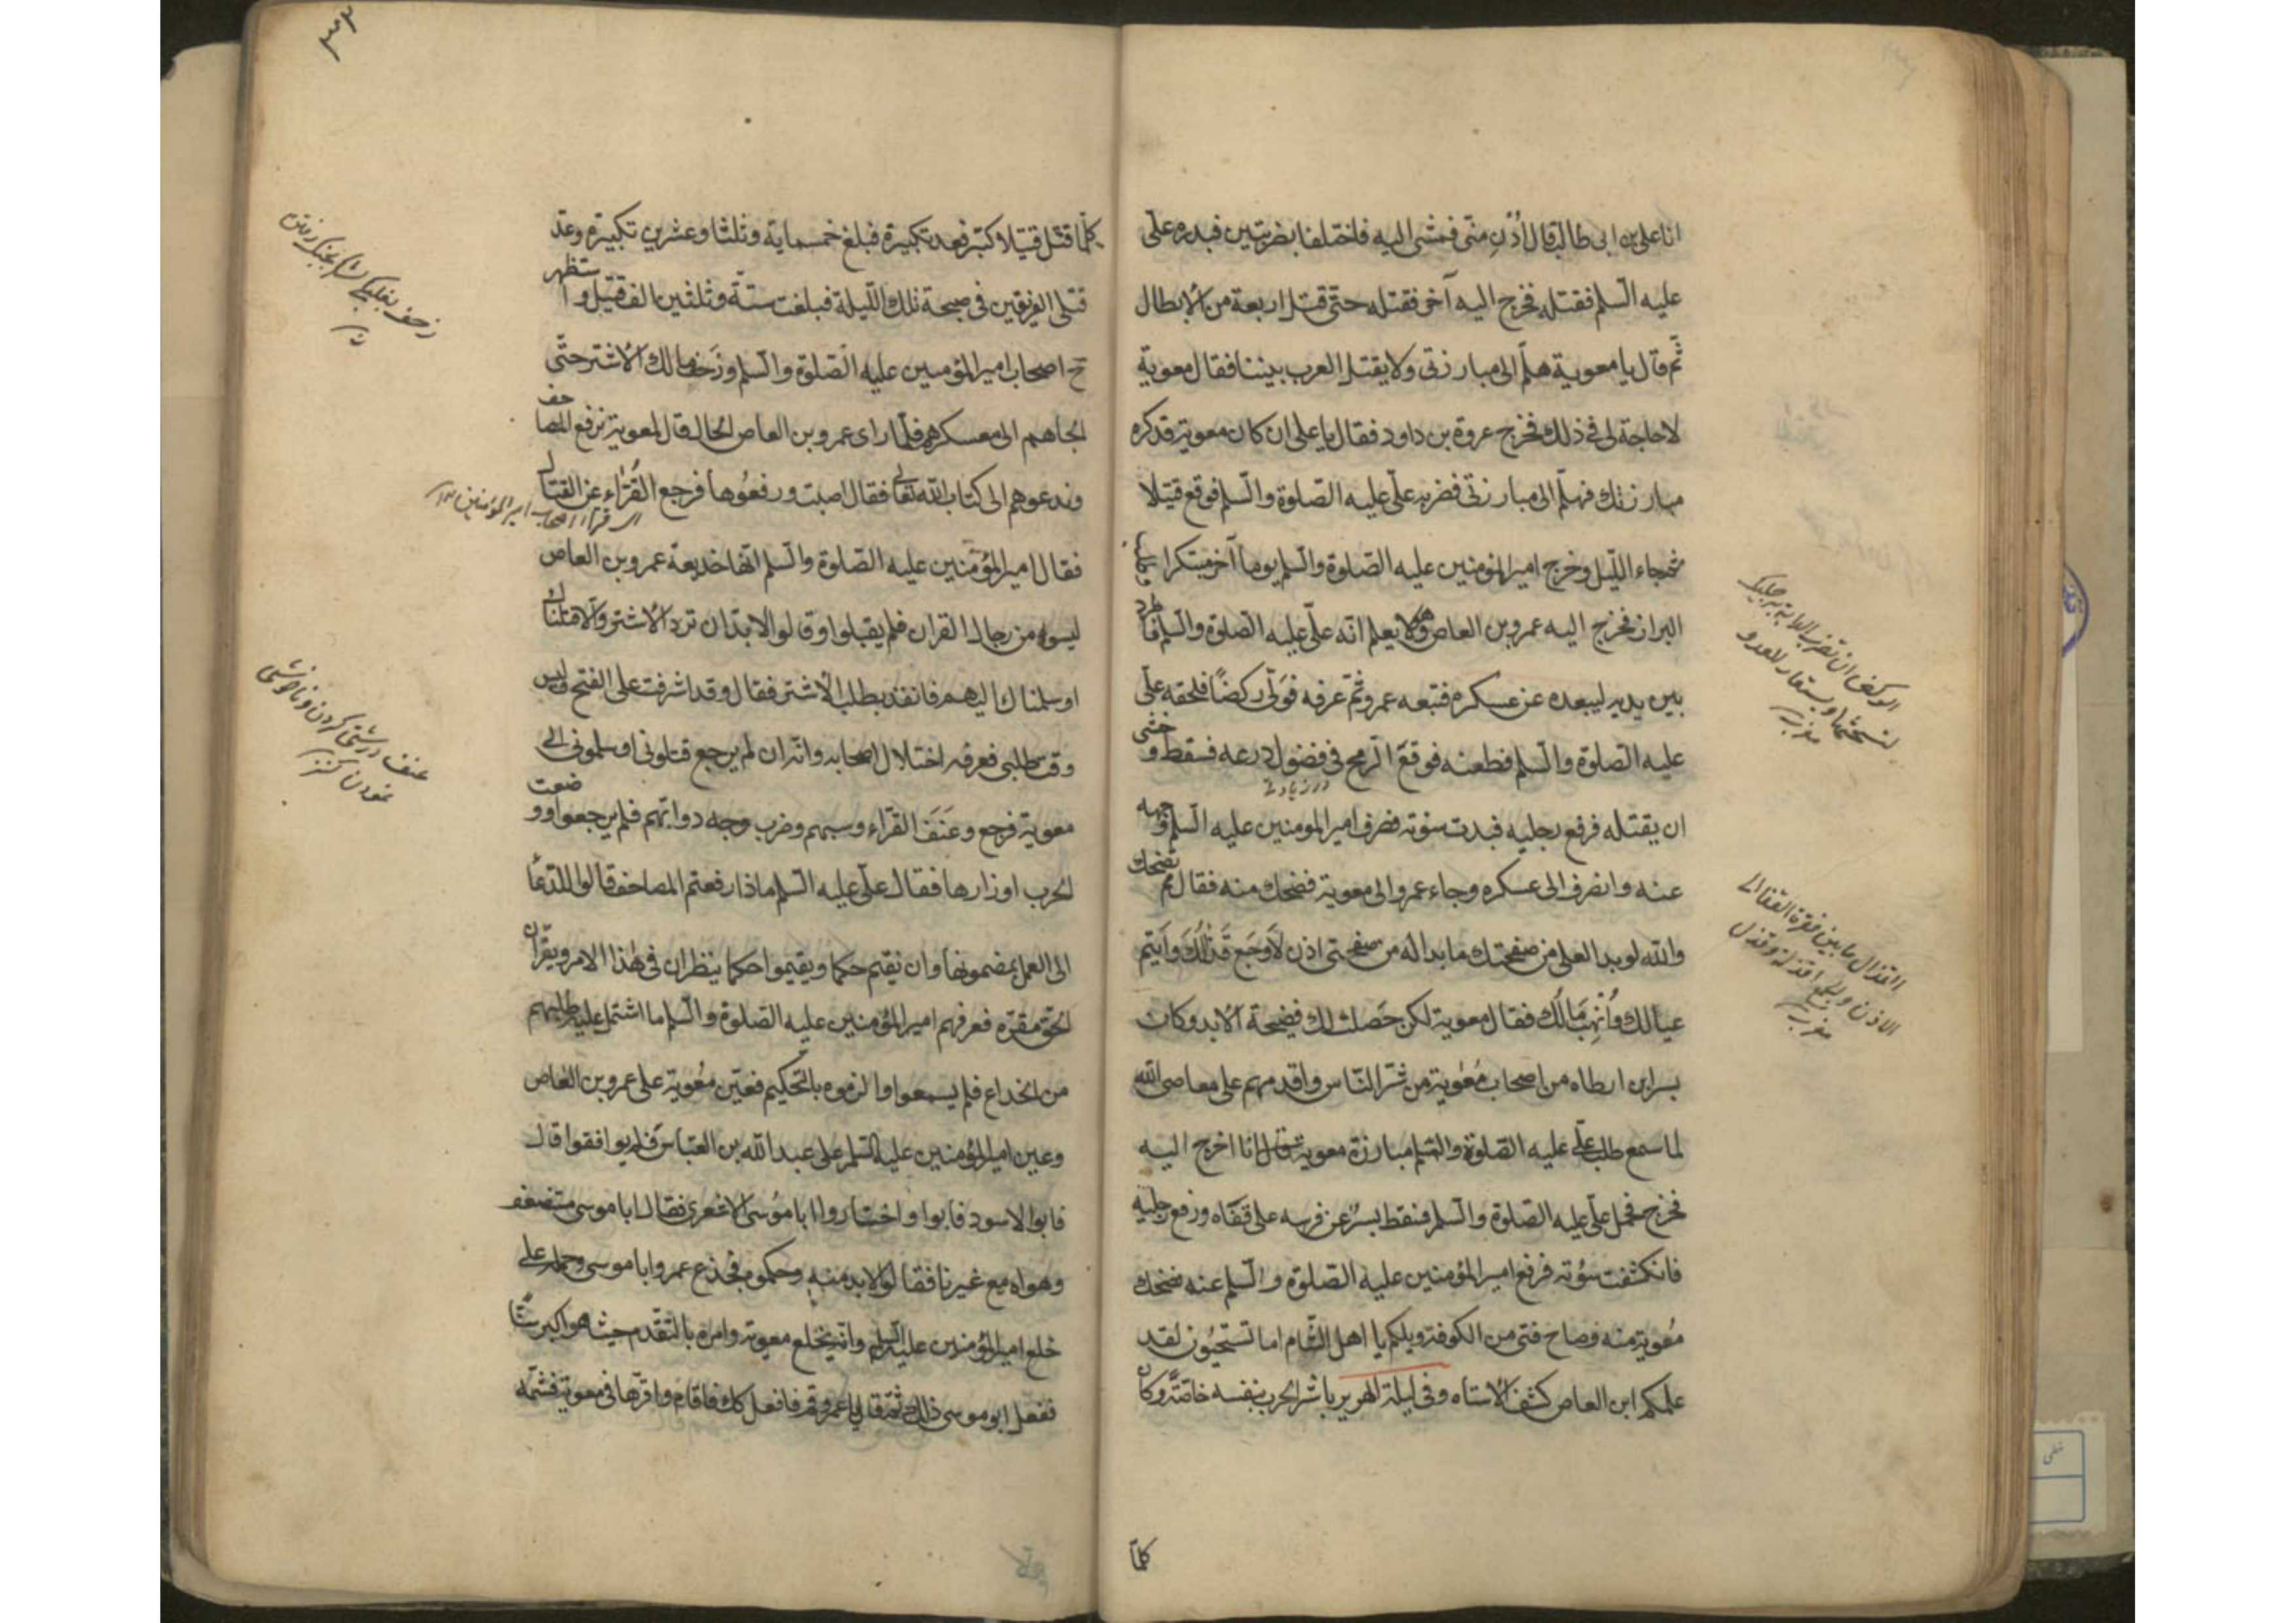 انا على بن ابى طالب قال اُدْنُ منّى فمشى اليه فاختلفا بضربتين فبدره علىّ
عليه السّلم فقتله فخرج اليه آخر فقتله حتّى قتل اربعة من الابطال
ثمّ قال يا معوية هلمّ الى مبارزتى ولا يقتل العرب بيننا فقال معوية
لا حاجة لى فى ذلك فخرج عروة بن داود فقال يا على ان كان معوية قد كره
مبارزتك فهلمّ الى مبارزتى فضربه علىّ عليه الصّلوة والسّلم فوقع قتيلا
ثم جاء اللّيل وخرج امير المؤمنين عليه الصّلوة والسّلم يوما آخر متنكرا
البراز فخرج اليه عمرو بن العاص وهو لا يعلم انّه علىّ عليه الصّلوة والسّلم فاطرد
بين يديه ليبعده عن عسكره فتبعه عمرو ثمّ عرفه فولّى ركضًا فلحقه علىّ
عليه الصّلوة والسّلم فطعنه فوقع الرّمح فى فضول درعه فسقط وخشى
ان يقتله فرفع رجليه فبدت سؤته فصرف امير المومنين عليه السّلم وجهه
عنه وانصرف الى عسكره وجاء عمرو الى معوية فضحك منه فقال مم تضحك
والله لو بدا لعلى من صفحتك ما بدا له من صفحتى اذن لَاَوجَع قَذالَكَ وَاَيتم
عيالك وَاَنهَبَ مَالَك فقال معوية لكن حَصلت لك فضيحة الابد وكان
بسر ابن ارطاه من اصحاب مُعٰوية من شرّ النّاس واقدمهم على معاصى الله
لما سمع طلب علىّ عليه الصّلوة والسّلم مبارزة معوية قال انا اخرج اليه
فخرج فحمل علىّ عليه الصّلوة والسّلم فسقط بسرٌ عن فرسه على قفَاه ورفع رجليه
فانكشفت سؤته فرفع امير المؤمنين عليه الصّلوة والسّلم عنه فضحك
مُعٰوية منه وصاح فتى من الكوفة ويلكم يا اهل الشّام اما تستحيُون لقد
علمكم ابن العاص كشف الاستاه وفى ليلة الهرير باشر الحرب بنفسه خاصّةً وكان
كلّما
الركض ان تضرب الدابة برجليك
لتستحثها ويستعار للعدو
مغرب
القذال ما بين نقرة القفا الى
الاذن وجمع اقذلة وقذل
مغرب
كلّما قتل قتيلا كبّر فعد تكبيرة فبلغ خمسماية وثلثا وعشرين تكبيرة وعدّ
قتلى الفريقين فى صبيحة تلك اللّيلة فبلغت ستّة وثلثين الف قتيل واستظهر
ح اصحاب امير المؤمنين عليه الصّلوة والسّلم وزَحف مالك الاشتر حتّى
الجاهم الى معسكرهم فلمّا راى عمرو بن العاص الحال قال لمعوية نرفع المصاحف
وندعوهم الى كتاب الله تعالى فقال اصبت ورفعُوها فرجع القُرّاء عن القتال
اى قراء اصحاب امير المؤمنين
فقال امير المؤمنين عليه الصّلوة والسّلم انّها خديعة عمرو بن العاص
ليسوا من رجال القران فلم يقبلوا وقالوا لا بدّ ان تردّ الاشتر والّا قتلناك
او سلمناك اليهم فانفذ بطلب الاشتر فقال وقد اشرفت على الفتح وليس
وقت طلبى فعرفه اختلال اصحابه وانّه ان لم يرجع قتلونى او سلمونى الى
معوية فرجع وعَنَفَ القرّاء وسبهم وضرب وجه دوابّهم فلم يرجعوا ووضعت
الحرب اوزارها فقال علىّ عليه السّلم ماذا رفعتم المصاحف قالوا للدّعاء
الى العمل بمضمونها وان نقيم حكما ويقيموا حكما ينظران فى هٰذا الامر ويقرّان
الحق مقرّه فعرفهم امير المؤمنين عليه الصّلوة والسّلم ما اشتمل عليه طلبهم
من الخداع فلم يسمعوا والزموه بالتّحكيم فعيّن مُعٰوية على عمرو بن العاص
وعين امير المؤمنين عليه السّلم على عبد الله بن العبّاس فلم يوافقوا قال
فابو الاسود فابوا واختاروا ابا مُوسى الاشعرى فقال ابا موسى مستضعف
وهواه مع غيرنا فقالوا لا بد منه وحكموه فخدع عمرو ابا موسى وحمله على
خلع امير المؤمنين عليه السّلم وانّه يخلع معوية وامره بالتّقدم حيث هو اكبر سنّا
ففعل ابو موسى ذلك ثمّ قال يا عمرو قم فافعل كك فاقام واقرّها فى معوية فشتمه
عنف درشتى كردن وناخوشى
نمودن كنز